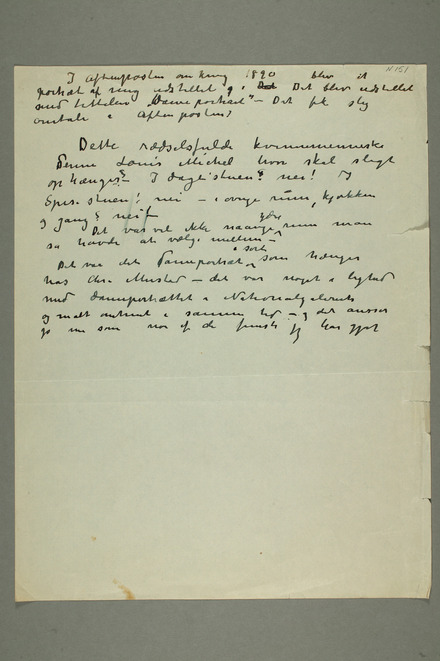 N 151
I Aftenposten omkring 1890 blev et
portræt af mig udstillet og i Det Det blev udstillet
med tittelen „Dameportræt" – Det fik slig
omtale i Aftenposten?
Dette rædselsfulde kvindemenneske
Denne Louis Michel hvor skal sligt
ophænges? I dagligstuen? nei! I
Spisestuen! nei – i øvrige rum, kjøkken
og gang? nei!
Det var vel ikke mange øvre rum man
så havde at vælge mellem –
Det var det Dameportræt i sort som hænger
hos Chr Mustad – det var noget i lighed
med dameportrættet i Nationalgaleriet
og malt omtrent i samme tid – og det ansser
jeg nu som noe af de fineste jeg har gjort